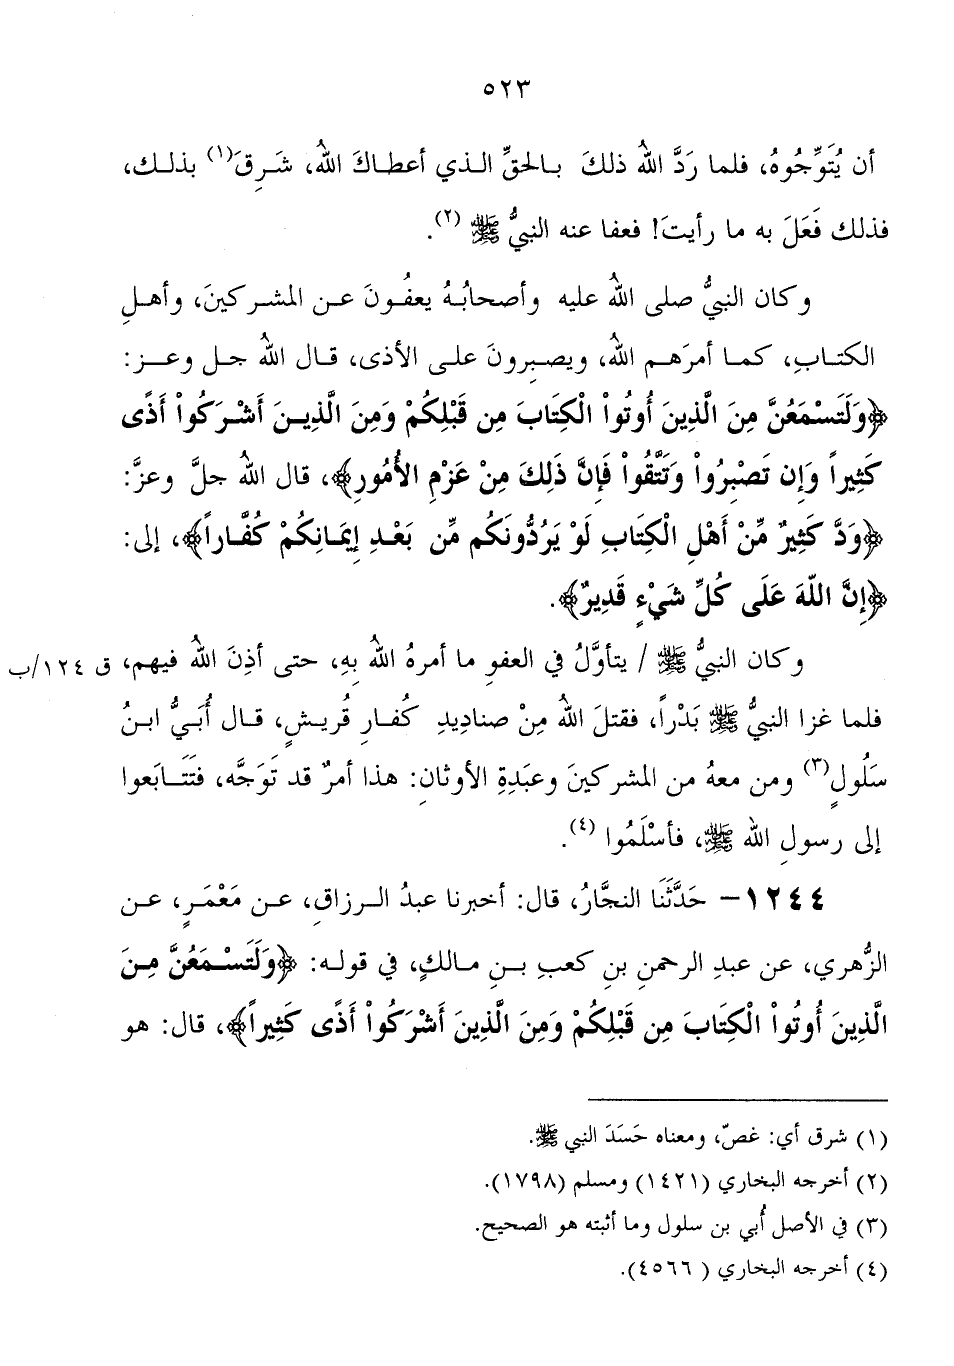 ٥٢٣
أن يُتَوِّجُوهُ، فلما رَدَّ اللهُ ذلكَ بالحقِّ الذي أعطاكَ اللهُ، شَرِقَ(١) بذلك،
فذلك فَعَلَ به ما رأيتَ! فعفا عنه النبيُّ ﷺ (٢).
وكان النبيُّ صلى اللهُ عليه وأصحابُهُ يعفُونَ عن المشركينَ، وأهلِ
الكتابِ، كما أمرَهم اللهُ، ويصبِرونَ على الأذى، قال اللهُ جل وعز:
﴿وَلَتَسْمَعُنَّ مِنَ الَّذِينَ أُوتُواْ الْكِتَابَ مِن قَبْلِكُمْ وَمِنَ الَّذِينَ أَشْرَكُواْ أَذًى
كَثِيراً وَإِن تَصْبِرُواْ وَتَتَّقُواْ فَإِنَّ ذَلِكَ مِنْ عَزْمِ الأُمُورِ﴾، قال اللهُ جلَّ وعزَّ:
﴿وَدَّ كَثِيرٌ مِّنْ أَهْلِ الْكِتَابِ لَوْ يَرُدُّونَكُم مِّن بَعْدِ إِيمَانِكُمْ كُفَّاراً﴾، إلى:
﴿إِنَّ اللّهَ عَلَى كُلِّ شَيْءٍ قَدِيرٌ﴾.
وكان النبيُّ ﷺ / يتأوَّلُ في العفوِ ما أمرهُ اللهُ بِهِ، حتى أذِنَ اللهُ فيهم، ق ١٢٤/ب
فلما غزا النبيُّ ﷺ بَدْراً، فقتلَ اللهُ مِنْ صناديدِ كُفارِ قُريشٍ، قال أُبَيُّ ابنُ
سَلُولٍ(٣) ومن معهُ من المشركينَ وعبَدِةِ الأوثانِ: هذا أمرٌ قد تَوَجَّه، فتَتَابَعوا
إلى رسولِ الله ﷺ، فأسْلَمُوا (٤).
١٢٤٤- حَدَّثَنَا النجَّارُ، قال: أخبرنا عبدُ الرزاقِ، عن مَعْمَرٍ، عن
الزُّهري، عن عبدِ الرحمنِ بنِ كعبِ بنِ مالكٍ، في قوله: ﴿وَلَتَسْمَعُنَّ مِنَ
الَّذِينَ أُوتُواْ الْكِتَابَ مِن قَبْلِكُمْ وَمِنَ الَّذِينَ أَشْرَكُواْ أَذًى كَثِيراً﴾، قال: هو
(١) شرق أي: غصّ، ومعناه حَسَدَ النبي ﷺ.
(٢) أخرجه البخاري (١٤٢١) ومسلم (١٧٩٨).
(٣) في الأصل أُبي بن سلول وما أثبته هو الصحيح.
(٤) أخرجه البخاري ( ٤٥٦٦).